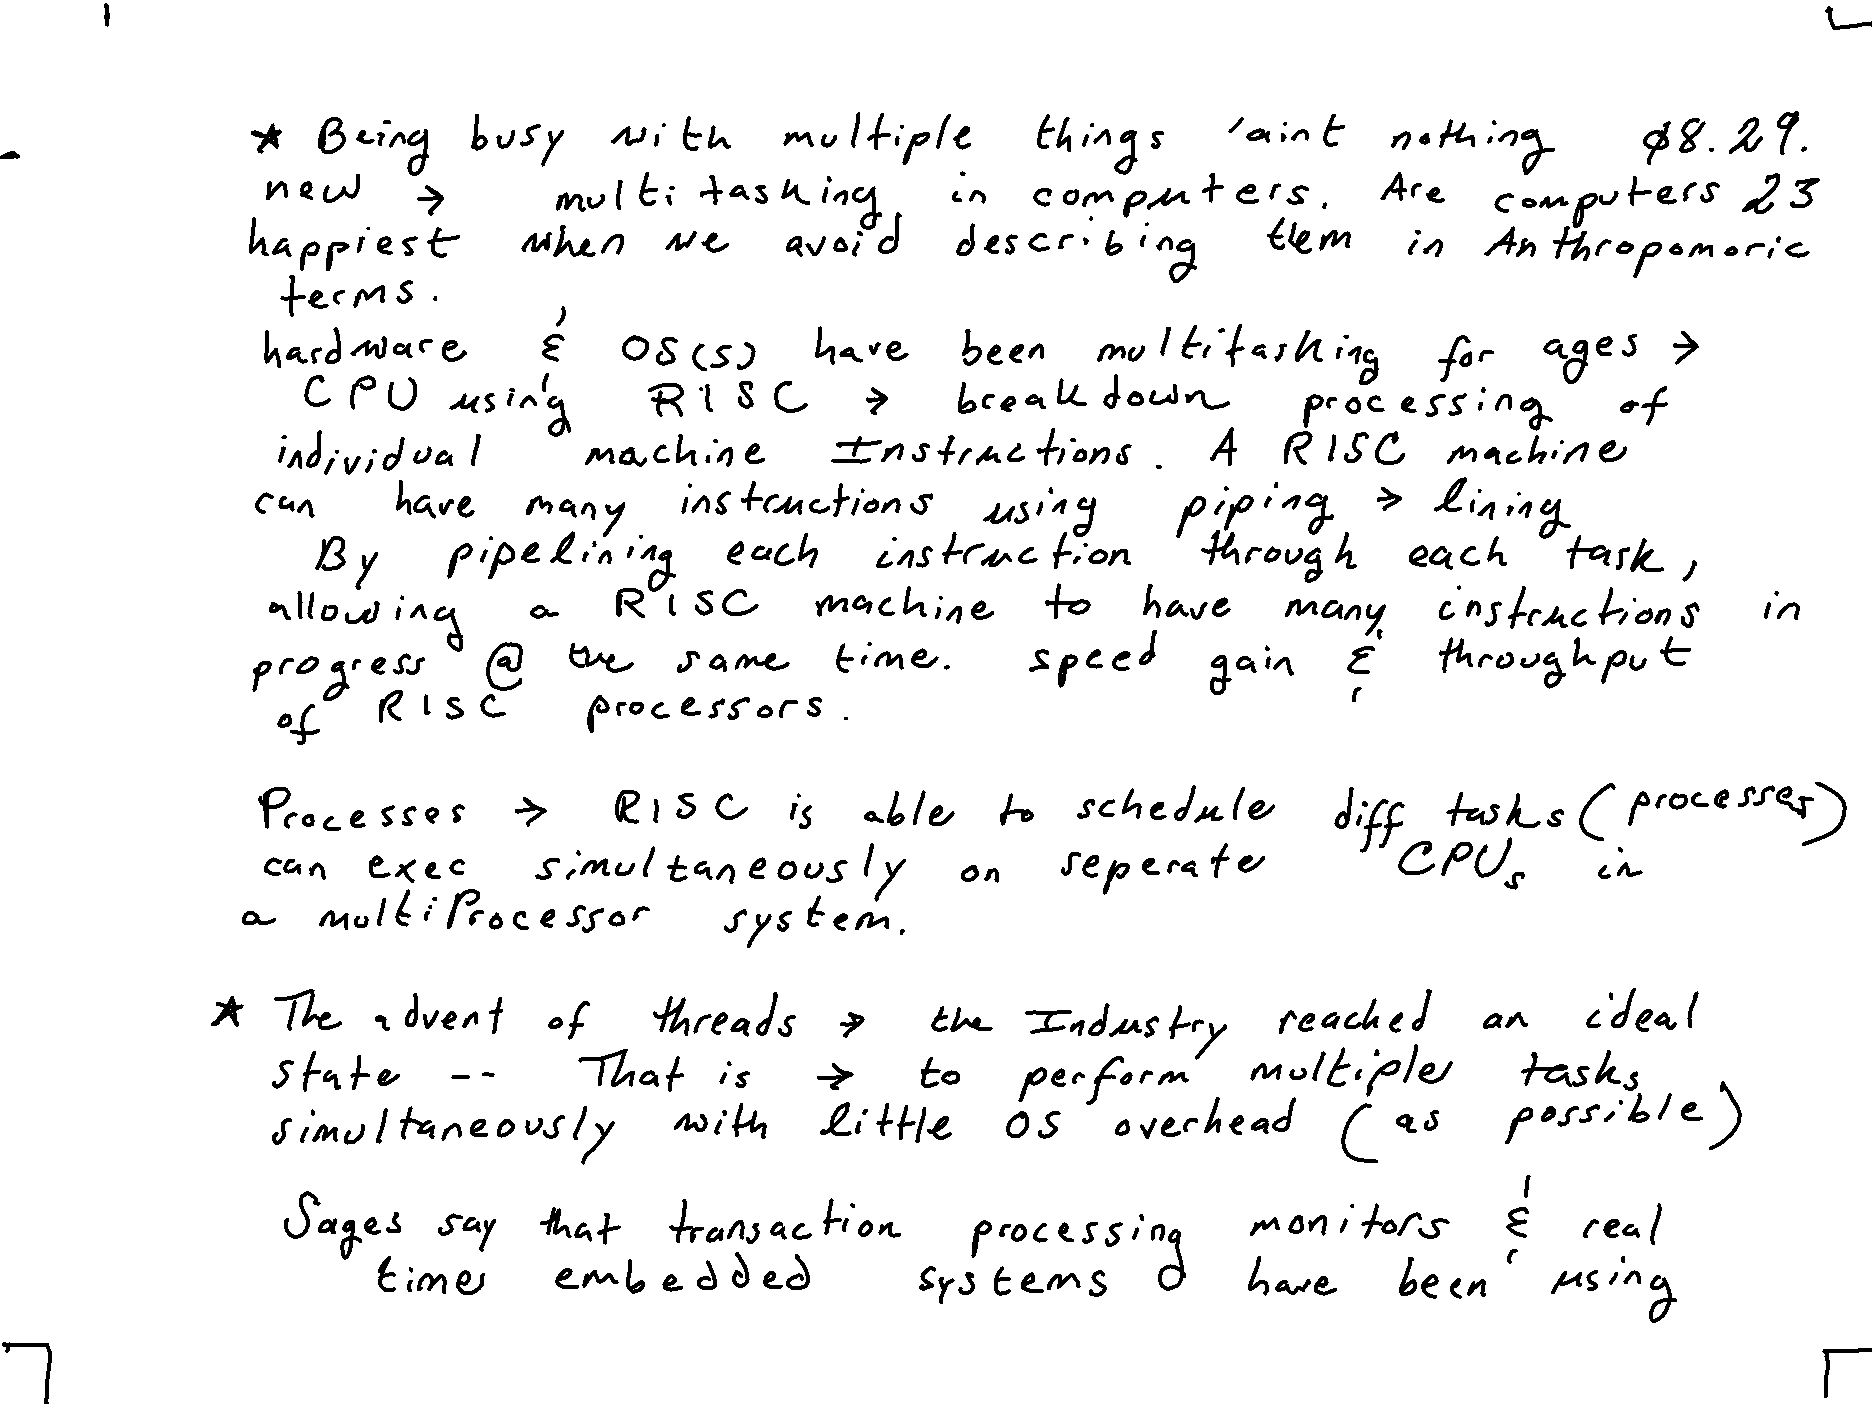 * Being busy with multiple things 'aint nothing 08.29.
new → multitasking in computers. Are computers 23
happiest when we avoid describing them in Anthropomoric
terms.
hardware & OS(s) have been multitasking for ages →
CPU using RISC → breakdown processing of
individual machine Instructions. A RISC machine
can have many instructions using piping → lining
By pipelining each instruction through each task,
allowing a RISC machine to have many instructions in
progress @ the same time. speed gain & throughput
of RISC processors.
Processes → RISC is able to schedule diff tasks (processes)
can exec simultaneously on seperate CPUs in
a multiProcessor system.
* The advent of threads → the Industry reached an ideal
state -- That is → to perform multiple tasks
simultaneously with little OS overhead (as possible)
Sages say that transaction processing monitors & real
time embedded systems have been using